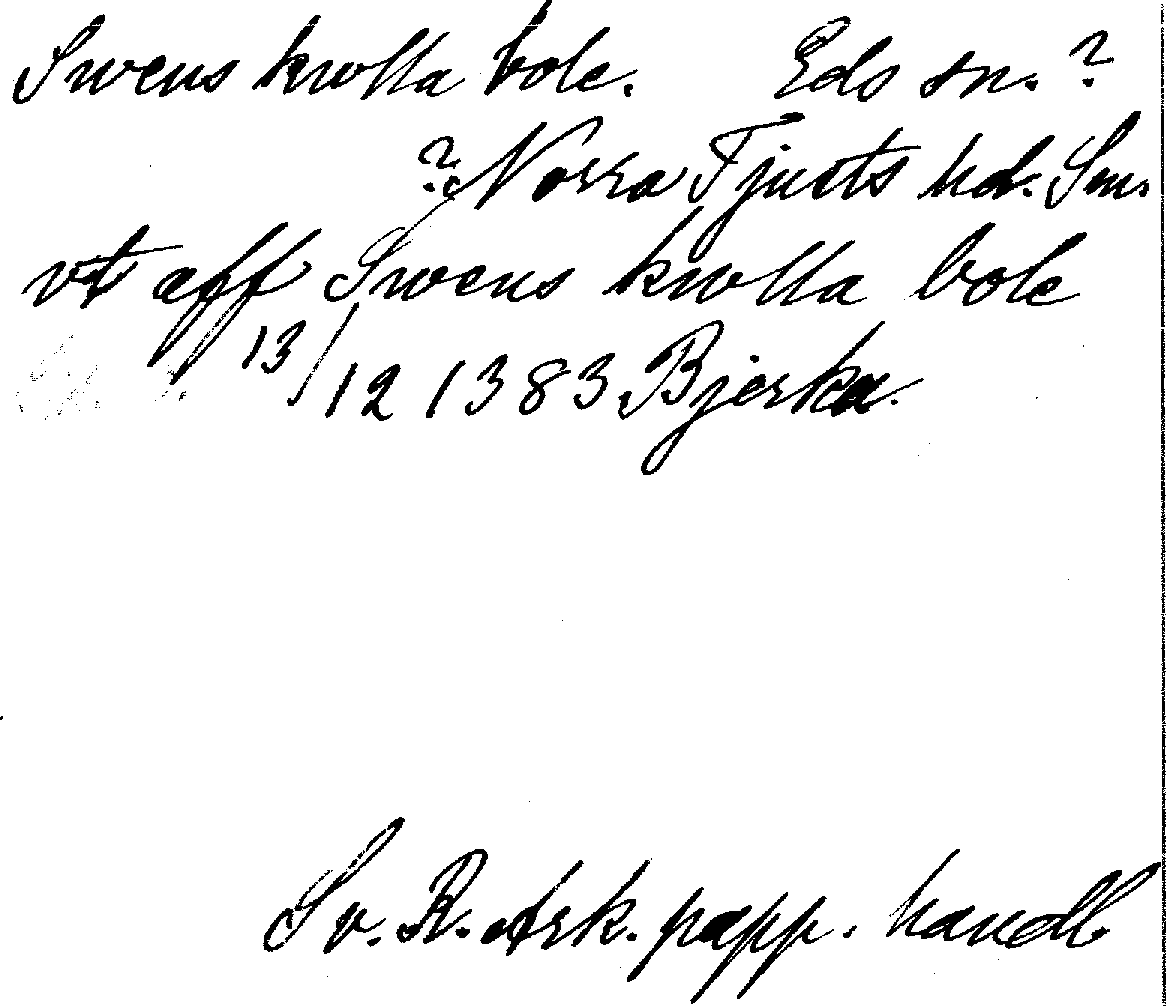 Swens knolla bole. Eds sn. ?
? Norra Tjusts hd. Sm.
vt aff Swens knolla bole
13/12 1383 Bjerka.
Sv. R. Ark. papp. handl